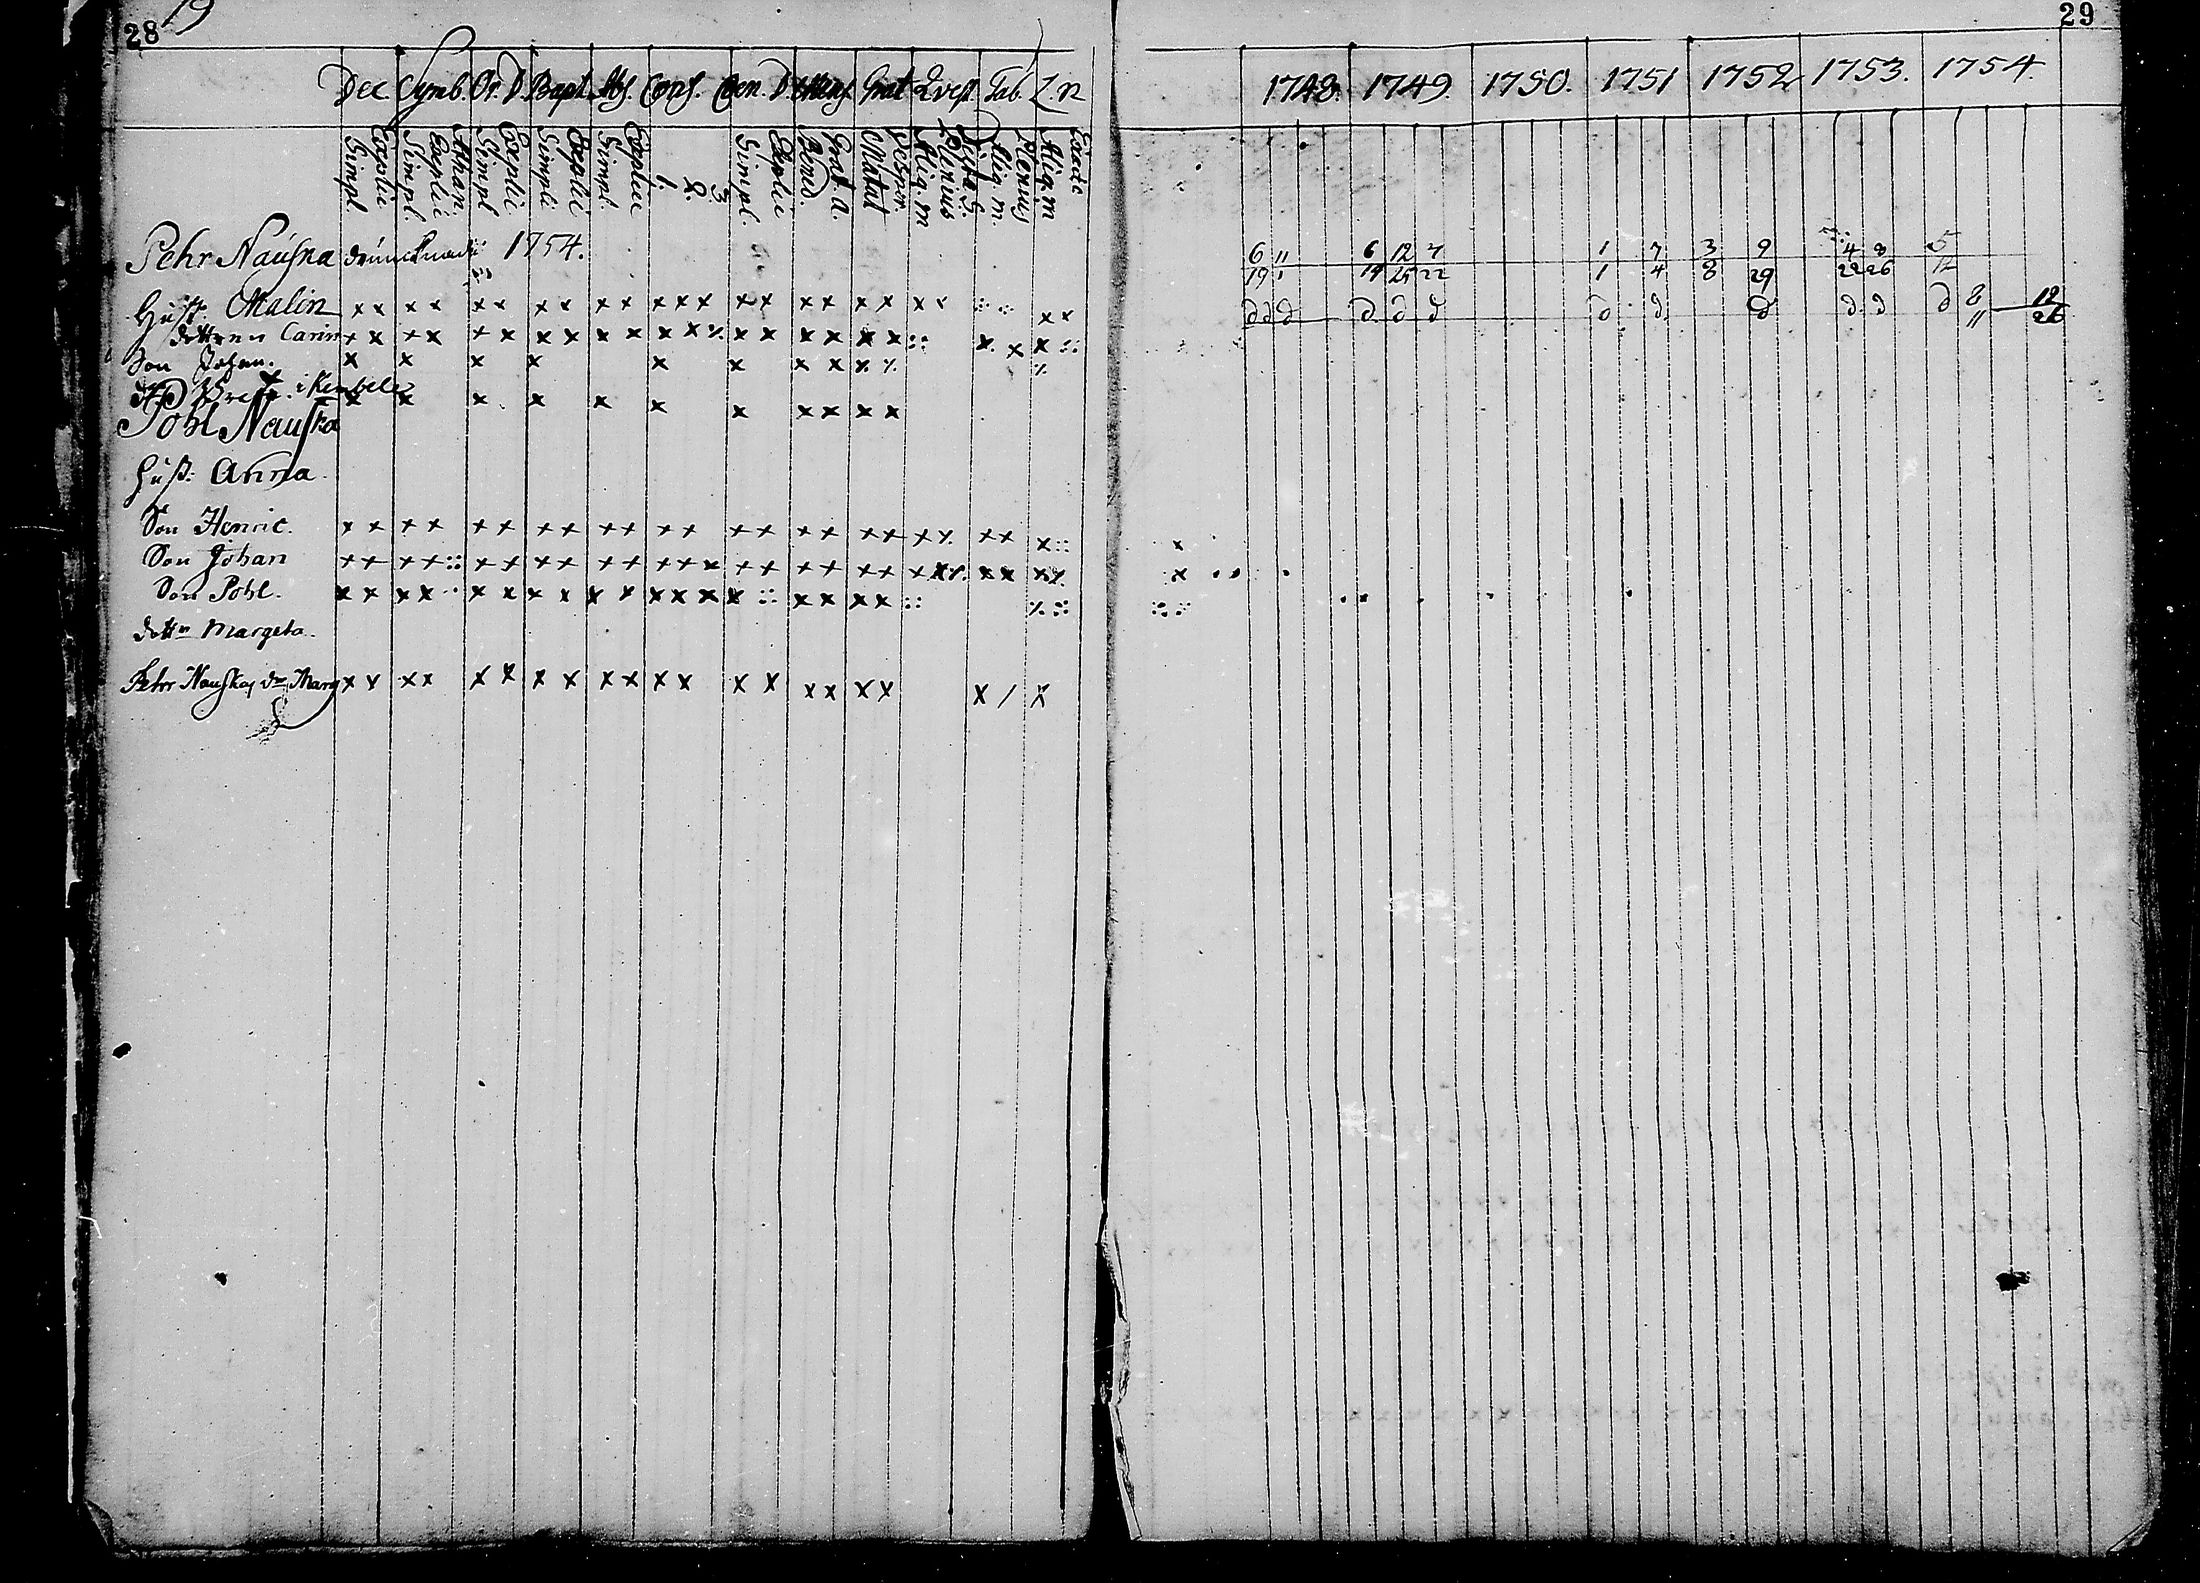 28 19
Dec. Symb. Or. D. Bapt. Abs. Conf. Cœn. D. Mens. Grat. Qvest. Tab. L. n
Simpl. Explic. Simpl. Explic. Athan. Simpl. Explic. Simpl. Explic. Simpl. Explic. 1. 2. 3 Simpl. Explic. Bened. Grat. a. Matut. Vesper. Aliq. m Plenius Dicta S. Aliq. m. Plenius Aliq. m Exacte
Pehr Nauska drunknade 1754.
Hust. Malin x x x x x x x x x x x x x x x x x x x x x x x
dottren Carin x x x x x x x x x x x x x x x x x x x x x x x
Son Johan. x x x x x x x x
i Kembele x x x x x x x x x x x
Pohl Nauska
Hust: Anna
Son Henric. x x x x x x x x x x x x x x x x x x x x x x
Son Johan x x x x x x x x x x x x x x x x x x x x x x x
Son Pohl. x x x x x x x x x x x x x x x x x x
dottr Margeta.
Pehr Nauskas dr Marg x x x x x x x x x x x x x x x x x x x / x
29
1748. 1749. 1750. 1751 1752 1753. 1754.
6 11 6 12 7 1 7 3 9 4 8 5
19 1 19 25 22 1 4 8 29 22 26 12
d d d d d d d d d d d d 8 12
11 26